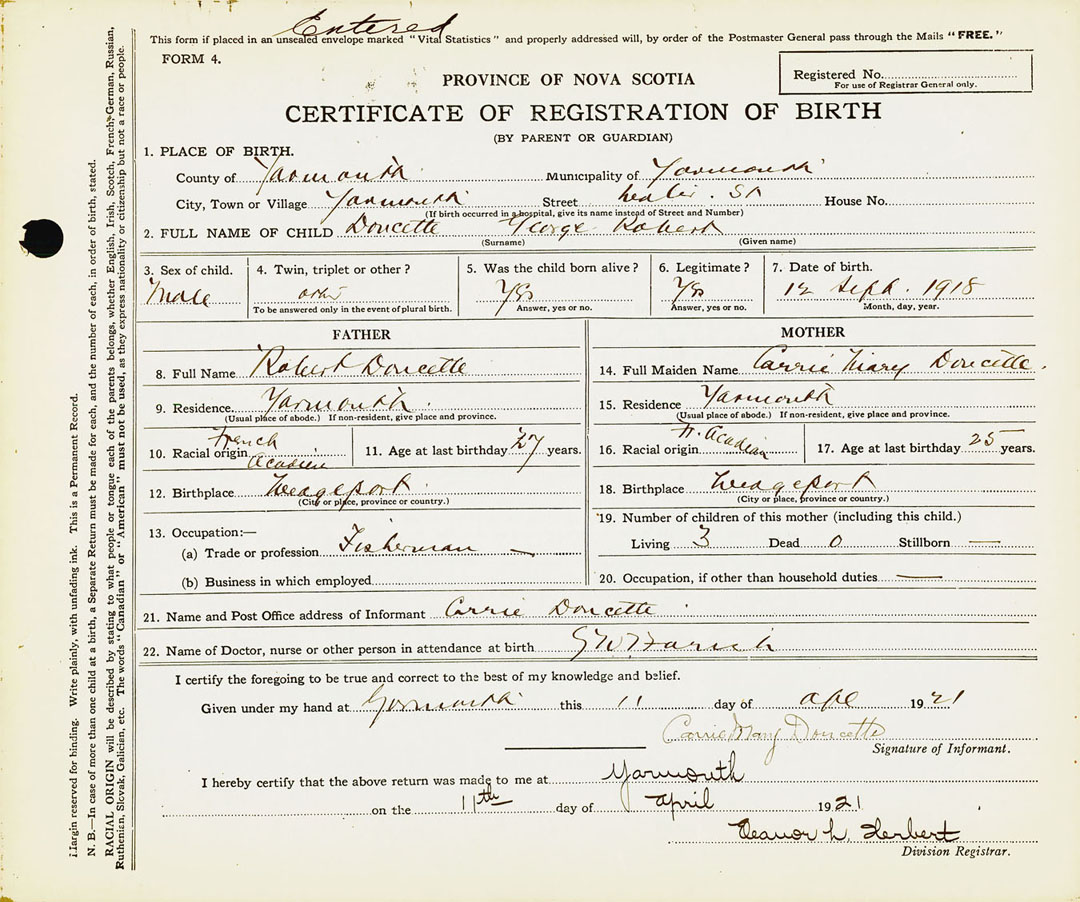 Entered
This form if placed in an unsealed envelope marked "Vital Statistics" and properly addressed will, by order of the Postmaster General pass through the Mails "FREE."
FORM 4.
Registered No.
For use of Registrar General only.
PROVINCE OF NOVA SCOTIA
CERTIFICATE OF REGISTRATION OF BIRTH
(BY PARENT OR GUARDIAN)
1. PLACE OF BIRTH.
County of Yarmouth Municipality of Yarmouth
City, Town or Village Yarmouth Street Water St House No.
(If birth occurred in a hospital, give its name instead of Street and Number)
2. FULL NAME OF CHILD Doucette George Robert
(Surname) (Given name)
3. Sex of child. 4. Twin, triplet or other? 5. Was the child born alive? 6. Legitimate? 7. Date of birth.
Male Yes Yes 12 Sept. 1918
To be answered only in the event of plural birth. Answer, yes or no. Answer, yes or no. Month, day, year.
FATHER
8. Full Name Robert Doucette
9. Residence. Yarmouth
(Usual place of abode.) If non-resident, give place and province.
10. Racial origin French Acadian 11. Age at last birthday 27 years.
12. Birthplace Wedgeport
(City or place, province or country.)
13. Occupation:—
(a) Trade or profession Fisherman —
(b) Business in which employed
MOTHER
14. Full Maiden Name Carrie Mary Doucette.
15. Residence Yarmouth
(Usual place of abode.) If non-resident, give place and province.
16. Racial origin Fr. Acadian 17. Age at last birthday 25 years.
18. Birthplace Wedgeport
(City or place, province or country.)
19. Number of children of this mother (including this child.)
Living 3 Dead 0 Stillborn —
20. Occupation, if other than household duties —
21. Name and Post Office address of Informant Carrie Doucette
22. Name of Doctor, nurse or other person in attendance at birth G W
I certify the foregoing to be true and correct to the best of my knowledge and belief.
Given under my hand at Yarmouth this 11 day of Ape 1921
Carrie Mary Doucette
Signature of Informant.
I hereby certify that the above return was made to me at Yarmouth
on the 11th day of April 1921
Eleanor L. Herbert
Division Registrar.
Margin reserved for binding. Write plainly, with unfading ink. This is a Permanent Record.
N. B.—In case of more than one child at a birth, a Separate Return must be made for each, and the number of each, in order of birth, stated.
RACIAL ORIGIN will be described by stating to what people or tongue each of the parents belongs, whether English, Irish, Scotch, French, German, Russian,
Ruthenian, Slovak, Galician, etc. The words "Canadian" or "American" must not be used, as they express nationality or citizenship but not a race or people.